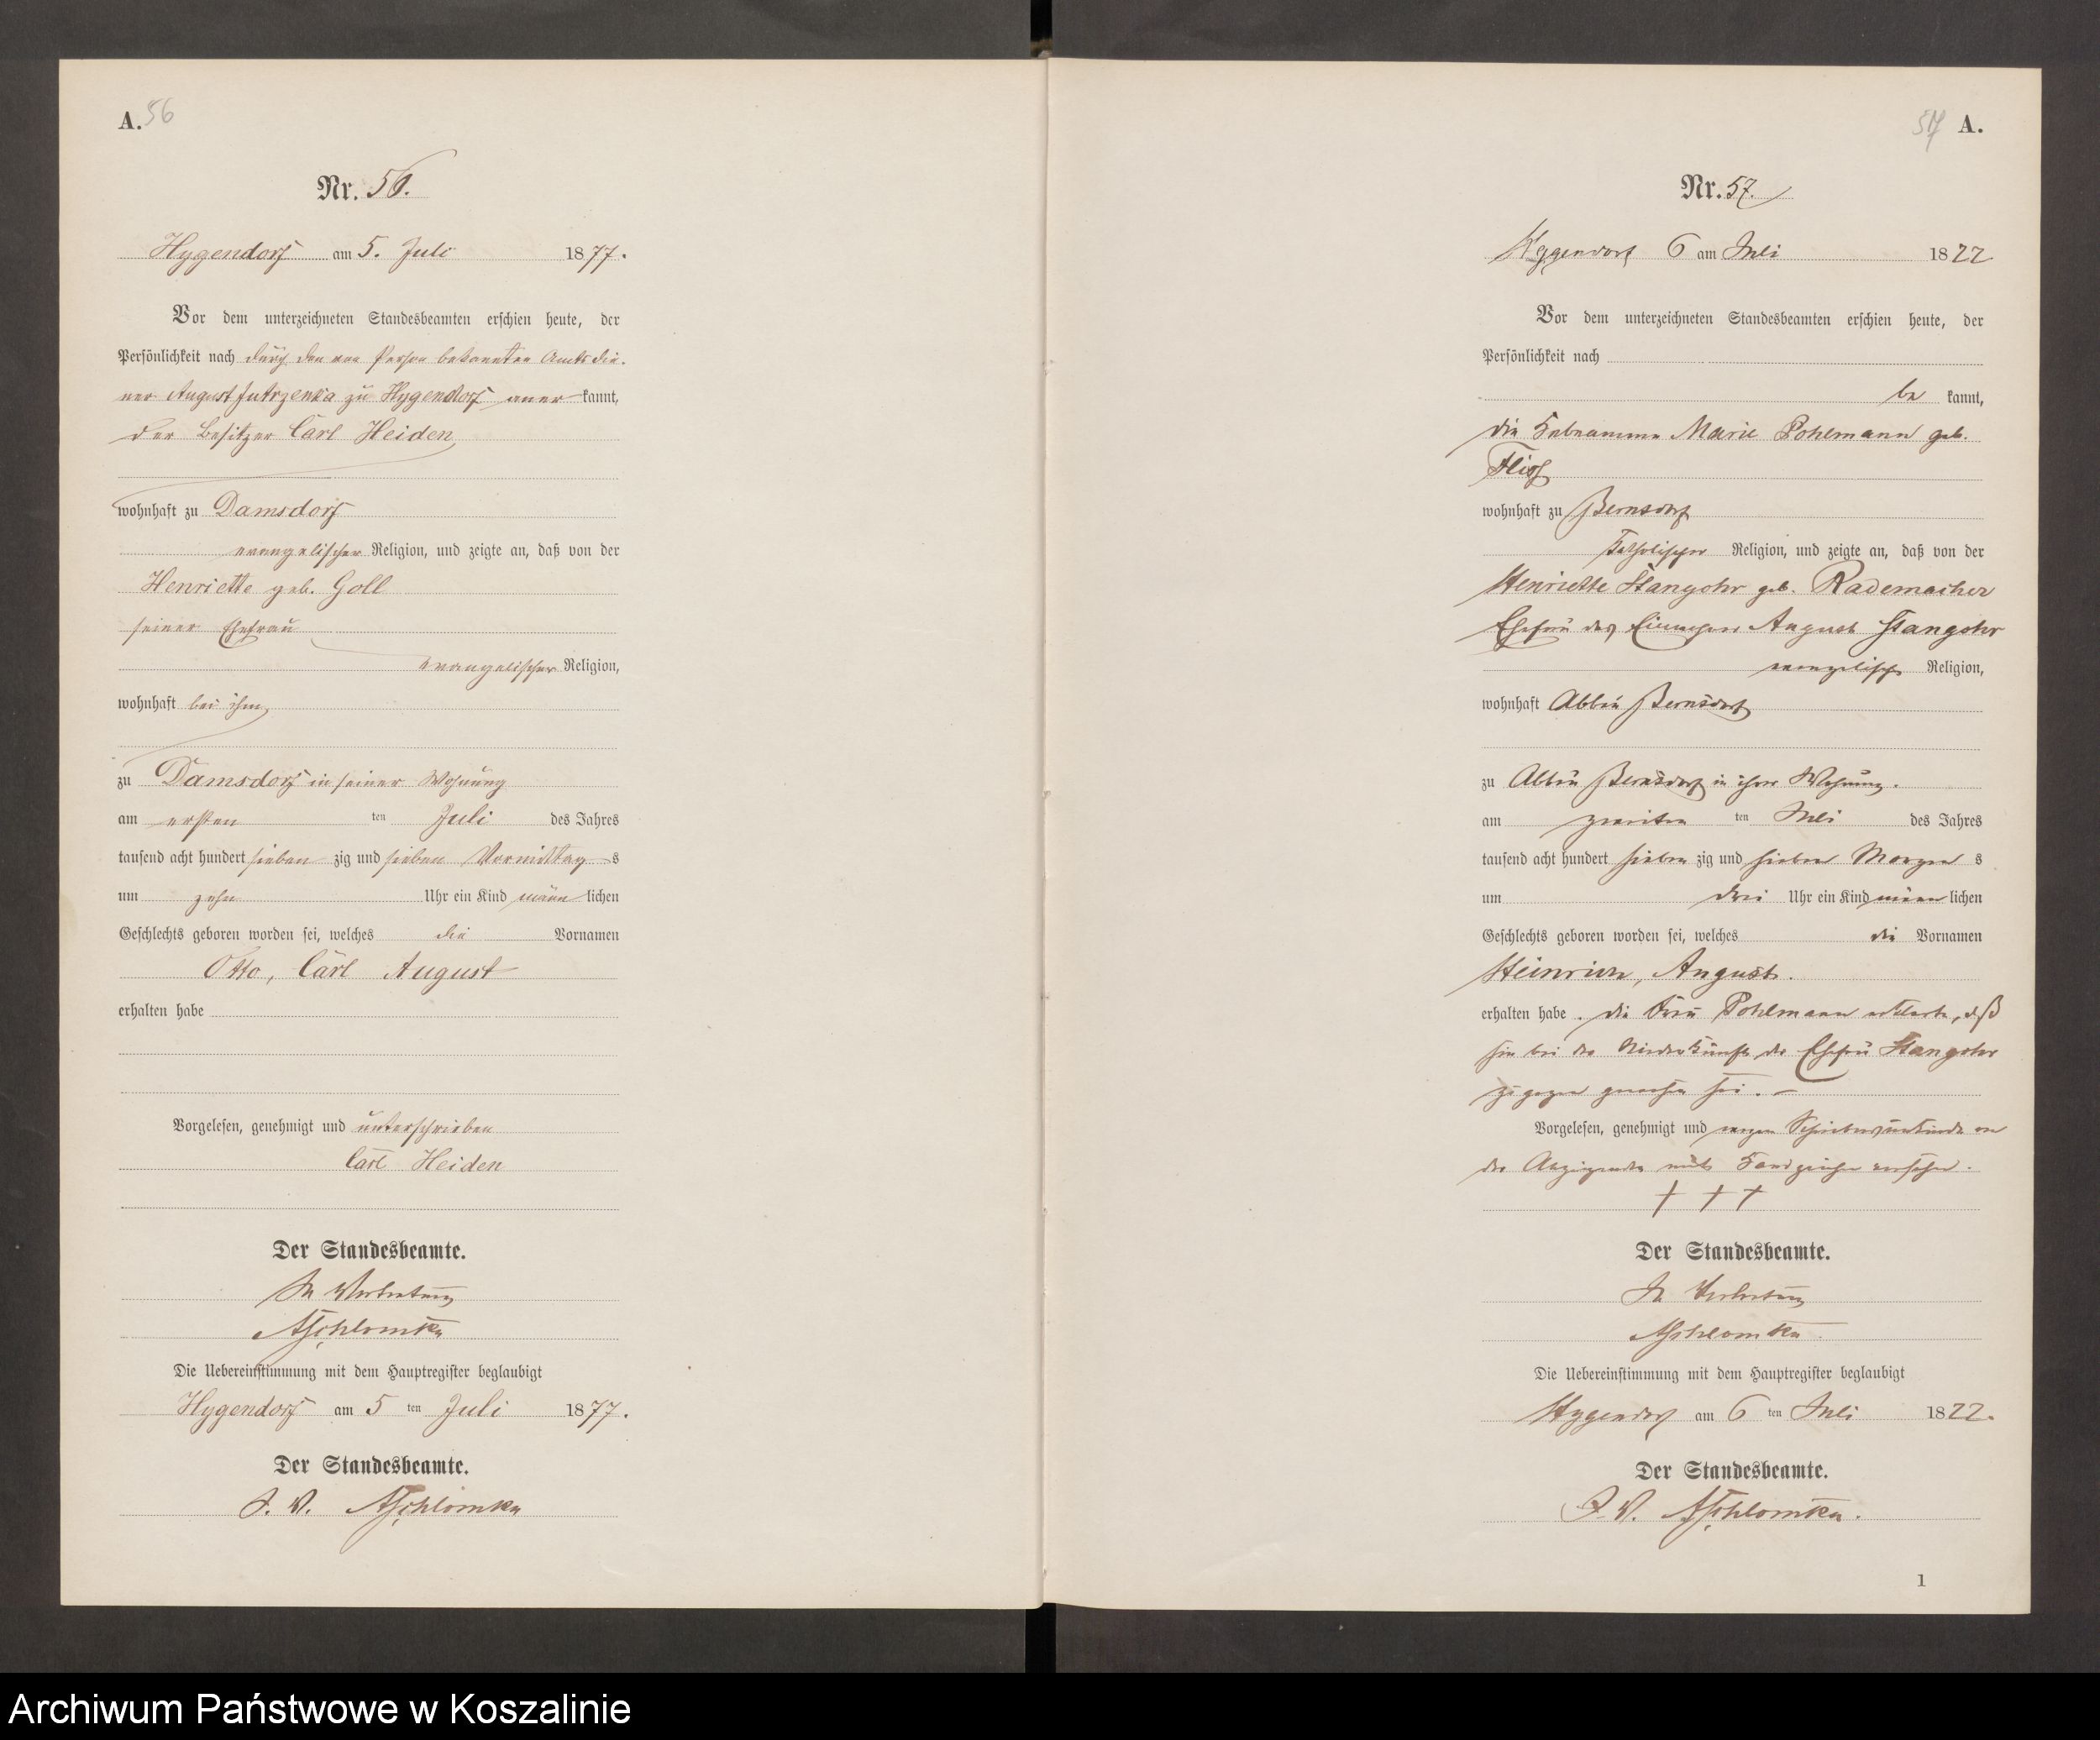 A. 56
Nr. 56.
Hygendorf am 5. Juli 1877.
Vor dem unterzeichneten Standesbeamten erschien heute, der
Persönlichkeit nach durch den von Person bekannten Amtsdie-
ner August Jutrzenka zu Hygendorf anerkannt,
der Besitzer Carl Heiden,
wohnhaft zu Damsdorf
evangelischer Religion, und zeigte an, daß von der
Henriette geb. Goll
seiner Ehefrau
evangelischer Religion,
wohnhaft bei ihm,
zu Damsdorf in seiner Wohnung
am ersten ten Juli des Jahres
tausend acht hundert sieben zig und sieben Vormittag s
um zehn Uhr ein Kind männ lichen
Geschlechts geboren worden sei, welches die Vornamen
Otto, Carl August
erhalten habe
Vorgelesen, genehmigt und unterschrieben
Carl Heiden
Der Standesbeamte.
In Vertretung
Die Uebereinstimmung mit dem Hauptregister beglaubigt
Hygendorf am 5 ten Juli 1877.
Der Standesbeamte.
J. V.
57 A.
Nr. 57.
Hygendorf 6 am Juli 1877
Vor dem unterzeichneten Standesbeamten erschien heute, der
Persönlichkeit nach
be kannt,
die Hebeamme Marie Pohlmann geb.
wohnhaft zu Bernsdorf
katholischer Religion, und zeigte an, daß von der
Henriette Stangohr geb. Rademacher
Ehefrau des August Stangohr
evangelisch Religion,
wohnhaft Abbau Bernsdorf
zu Abbau Bernsdorf in ihrer Wohnung.
am zweiten ten Juli des Jahres
tausend acht hundert sieben zig und sieben Morgen s
um drei Uhr ein Kind männ lichen
Geschlechts geboren worden sei, welches die Vornamen
Heinrich, August.
erhalten habe. die Frau Pohlmann erklärte, daß
sie bei der Niederkunft der Ehefrau Stangohr
zugegen gewesen sei. –
Vorgelesen, genehmigt und wegen Schreibensunkunde von
der Anzeigenden mit Handzeichen versehen.
+ + +
Der Standesbeamte.
In Vertretung
Die Uebereinstimmung mit dem Hauptregister beglaubigt
Hygendorf am 6 ten Juli 1877.
Der Standesbeamte.
J. V.
1
Archiwum Państwowe w Koszalinie